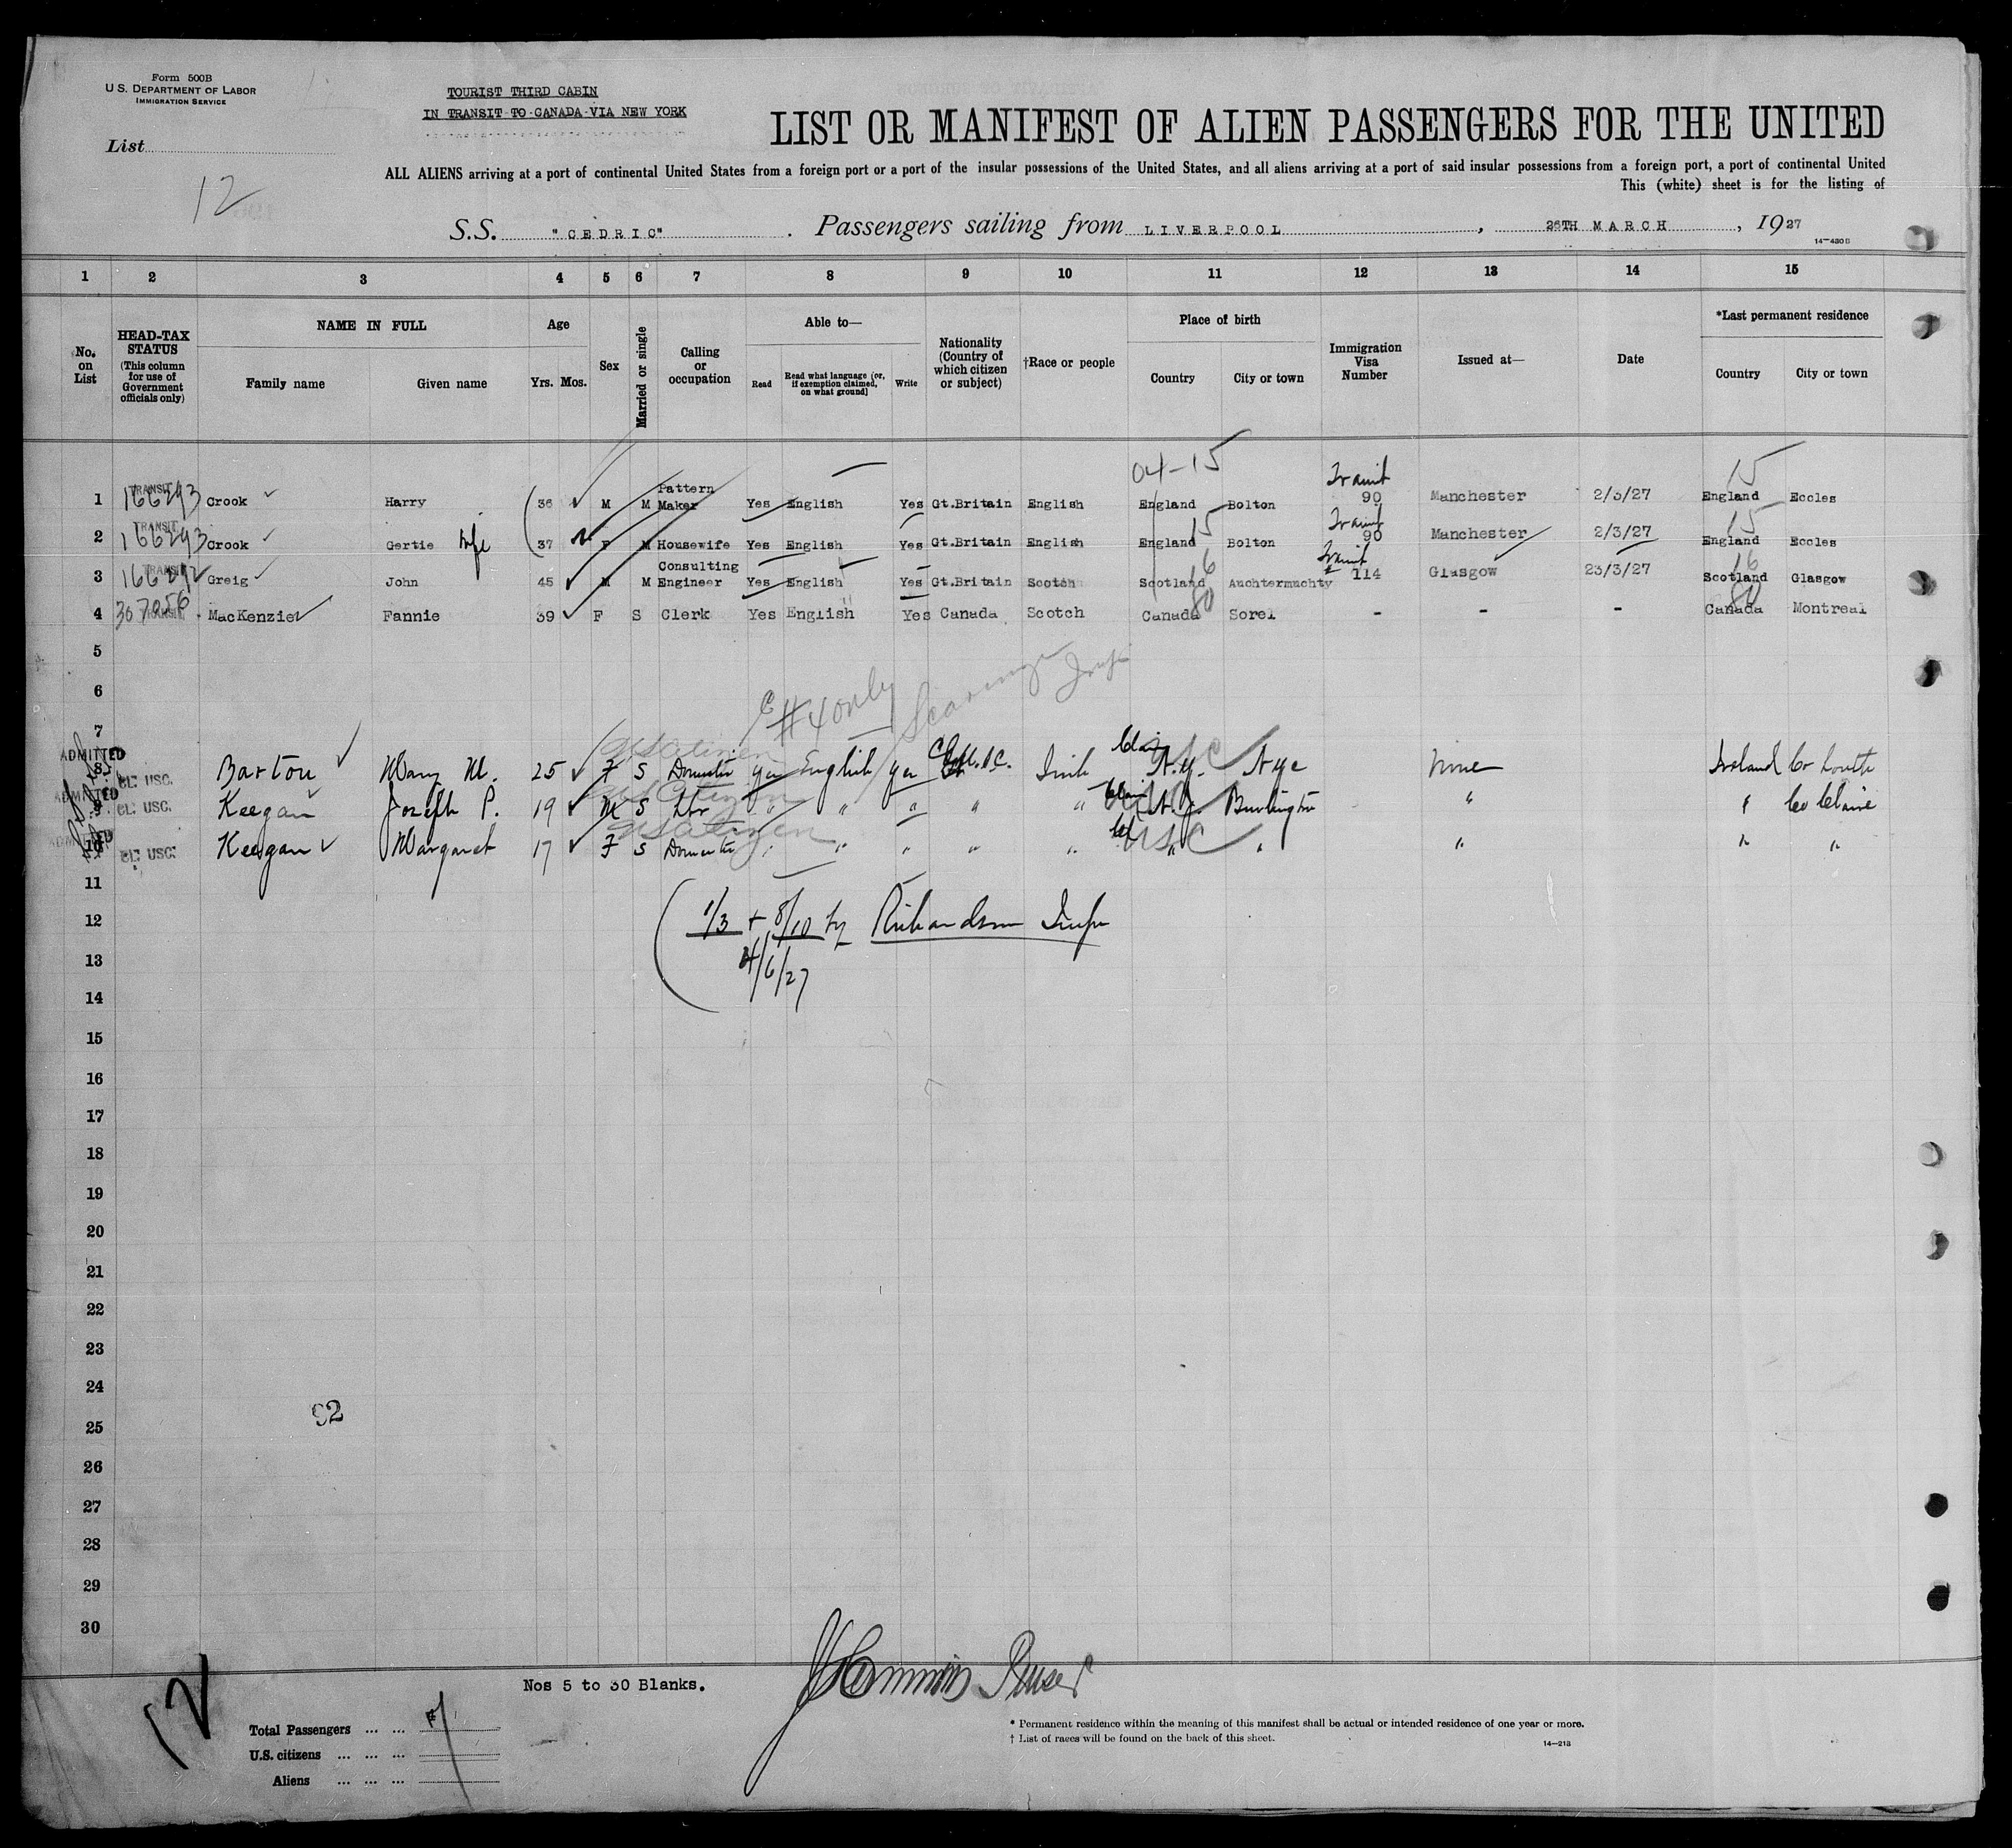 Form 500B
U.S. DEPARTMENT OF LABOR
IMMIGRATION SERVICE
TOURIST THIRD CABIN
IN TRANSIT TO CANADA VIA NEW YORK
List
12
LIST OR MANIFEST OF ALIEN PASSENGERS FOR THE UNITED
ALL ALIENS arriving at a port of continental United States from a foreign port or a port of the insular possessions of the United States, and all aliens arriving at a port of said insular possessions from a foreign port, a port of continental United
This (white) sheet is for the listing of
S.S. "CEDRIC". Passengers sailing from LIVERPOOL, 26TH MARCH, 1927
14—430 B
1 2 3 4 5 6 7 8 9 10 11 12 13 14 15
No. on List
HEAD-TAX STATUS (This column for use of Government officials only)
NAME IN FULL
Family name Given name
Age
Yrs. Mos.
Sex
Married or single
Calling or occupation
Able to—
Read
Read what language [or, if exemption claimed, on what ground]
Write
Nationality (Country of which citizen or subject)
†Race or people
Place of birth
Country City or town
Immigration Visa Number
Issued at—
Date
*Last permanent residence
Country City or town
04-15 Transit 15
1 TRANSIT 166293 Crook Harry 36 M M Pattern Maker Yes English Yes Gt.Britain English England Bolton 90 Manchester 2/3/27 England Eccles
15 Transit 15
2 TRANSIT 166293 Crook Gertie Wife 37 F M Housewife Yes English Yes Gt.Britain English England Bolton 90 Manchester 2/3/27 England Eccles
16 Transit 16
3 TRANSIT 166292 Greig John 45 M M Consulting Engineer Yes English Yes Gt.Britain Scotch Scotland Auchtermuchty 114 Glasgow 23/3/27 Scotland Glasgow
80 80
4 TRANSIT 307056 MacKenzie Fannie 39 F S Clerk Yes English Yes Canada Scotch Canada Sorel - - - Canada Montreal
5
6
#4 only
7
US Citizen
8 ADMITTED CL: USC. Barton Mary M. 25 F S Domestic yes English yes U.S.C. Irish Claim USC N.Y. Nyc none Ireland Co Louth
US Citizen
9 ADMITTED CL: USC. Keegan Joseph P. 19 M S Lbr " " " " " Claim N.J. Burlington " " Co Clare
US Citizen
10 ADMITTED CL: USC. Keegan Margaret 17 F S Domestic " " " " " USC " " " " "
11
12 1/3 + 8/10 by Richardson Insp
13 4/6/27
14
15
16
17
18
19
20
21
22
23
24
92
25
26
27
28
29
30
Nos 5 to 30 Blanks.
Purser
12
Total Passengers ... ...
U.S. citizens ... ... ...
Aliens ... ... ...
* Permanent residence within the meaning of this manifest shall be actual or intended residence of one year or more.
† List of races will be found on the back of this sheet.
14—213